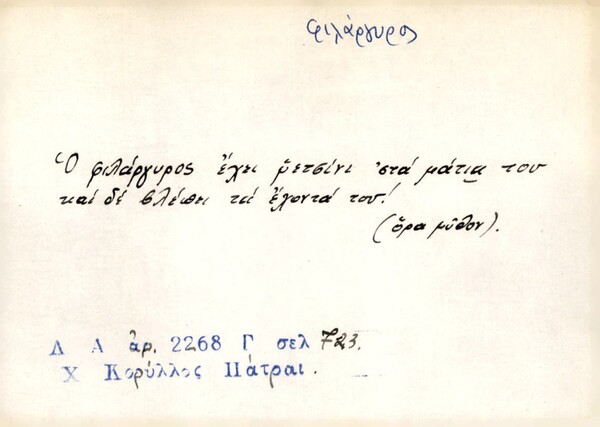 φιλάργυρος
Ὁ φιλάργυρος ἔχει ῥετσίνι 'στά μάτια του
καί δέ βλέπει τά ἔχοντά του!
(ὅρα μῦθον).
Λ Α ἀρ. 2268 Γ σελ 723.
Χ Κορύλλος Πάτραι.